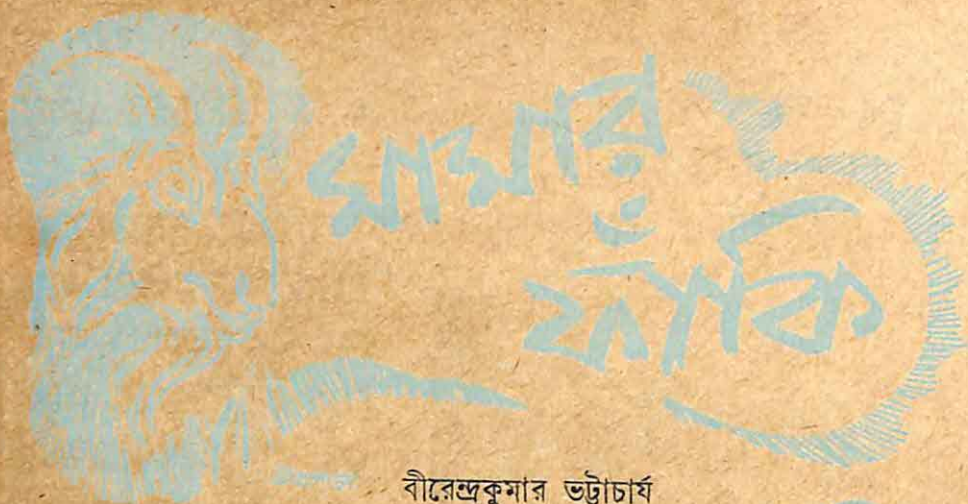 মামার
ফাঁকি
বীরেন্দ্রকুমার ভট্টাচার্য